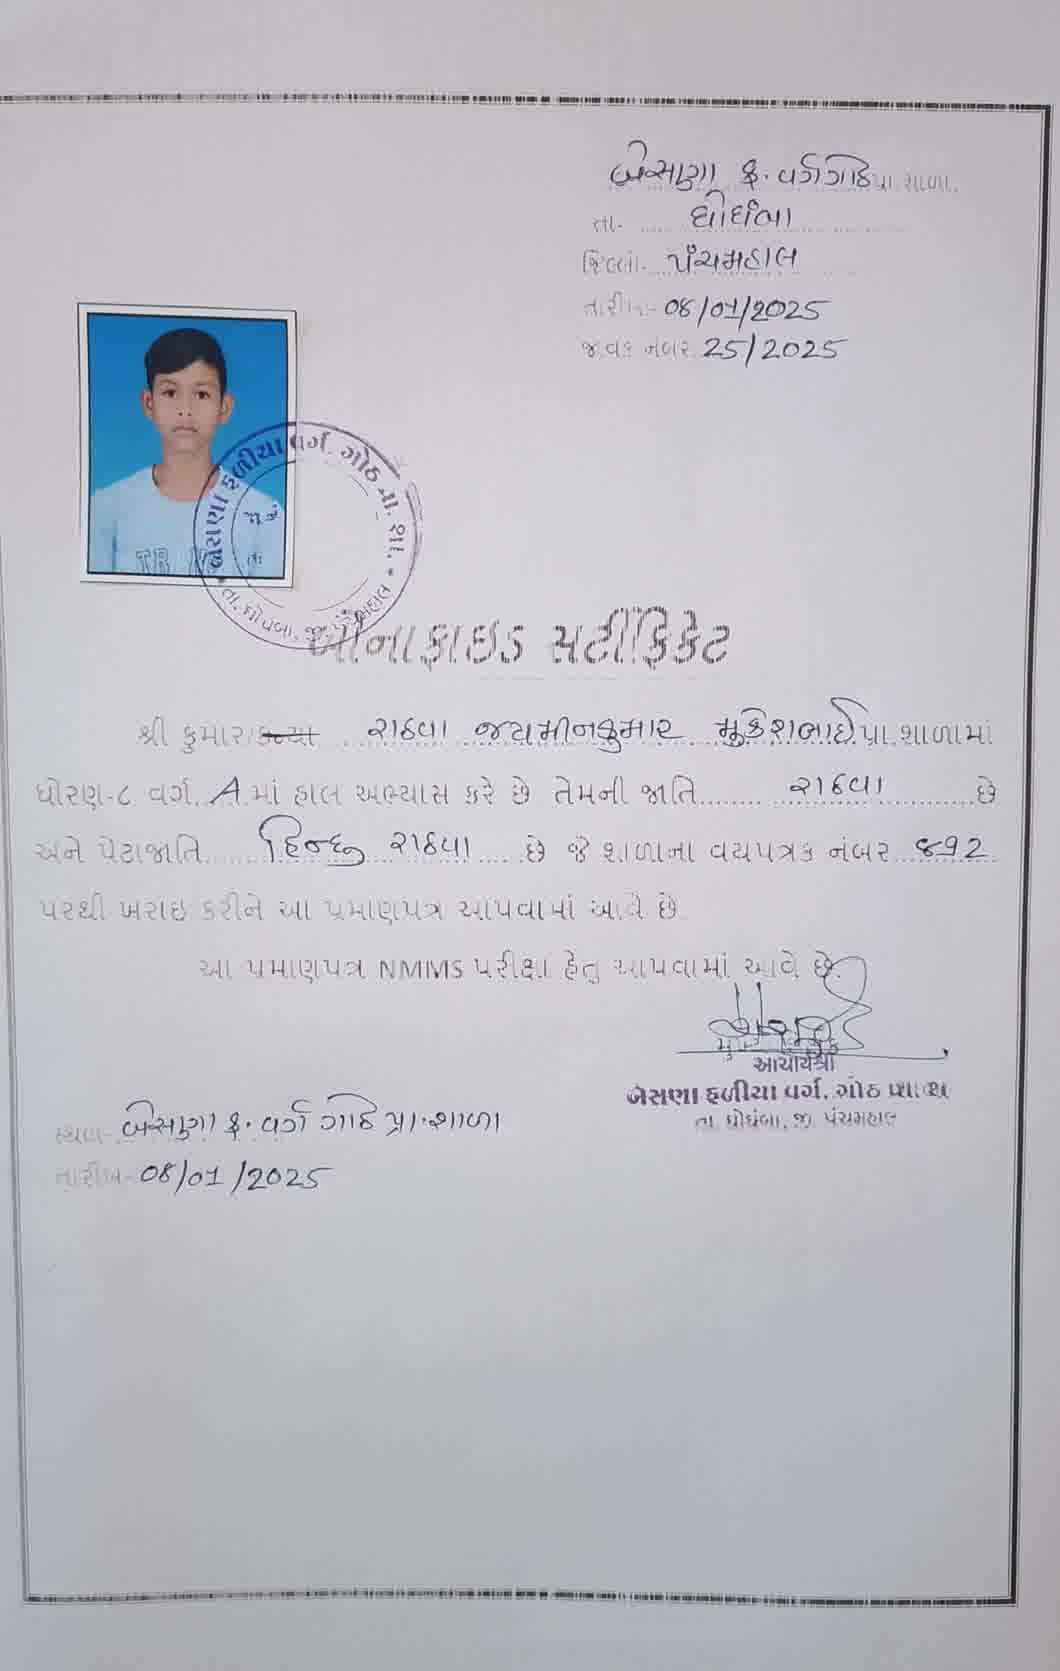 બેસણા ફ. વર્ગ ગોઠ પ્રા. શાળા.
તા- ઘોઘંબા
જિલ્લો- પંચમહાલ
તારીખ- 08/01/2025
જાવક નંબર 25/2025
બેસણા ફળીયા વર્ગ. ગોઠ પ્રા. શા.
તા. ઘોઘંબા, જી. પંચમહાલ
બોનાફાઇડ સર્ટીફિકેટ
શ્રી કુમાર/કન્યા રાઠવા જયમીનકુમાર મુકેશભાઈ પ્રા. શાળામાં
ધોરણ-૮ વર્ગ A માં હાલ અભ્યાસ કરે છે તેમની જાતિ રાઠવા છે
અને પેટાજાતિ હિન્દુ રાઠવા છે જે શાળાના વયપત્રક નંબર ૪૧2
પરથી ખરાઇ કરીને આ પ્રમાણપત્ર આપવામાં આવે છે.
આ પ્રમાણપત્ર NMMS પરીક્ષા હેતુ આપવામાં આવે છે.
આચાર્યશ્રી
બેસણા ફળીયા વર્ગ, ગોઠ પ્રા શા
તા. ઘોઘંબા, જી. પંચમહાલ
સ્થળ- બેસણા ફ. વર્ગ ગોઠ પ્રા. શાળા
તારીખ- 08/01/2025